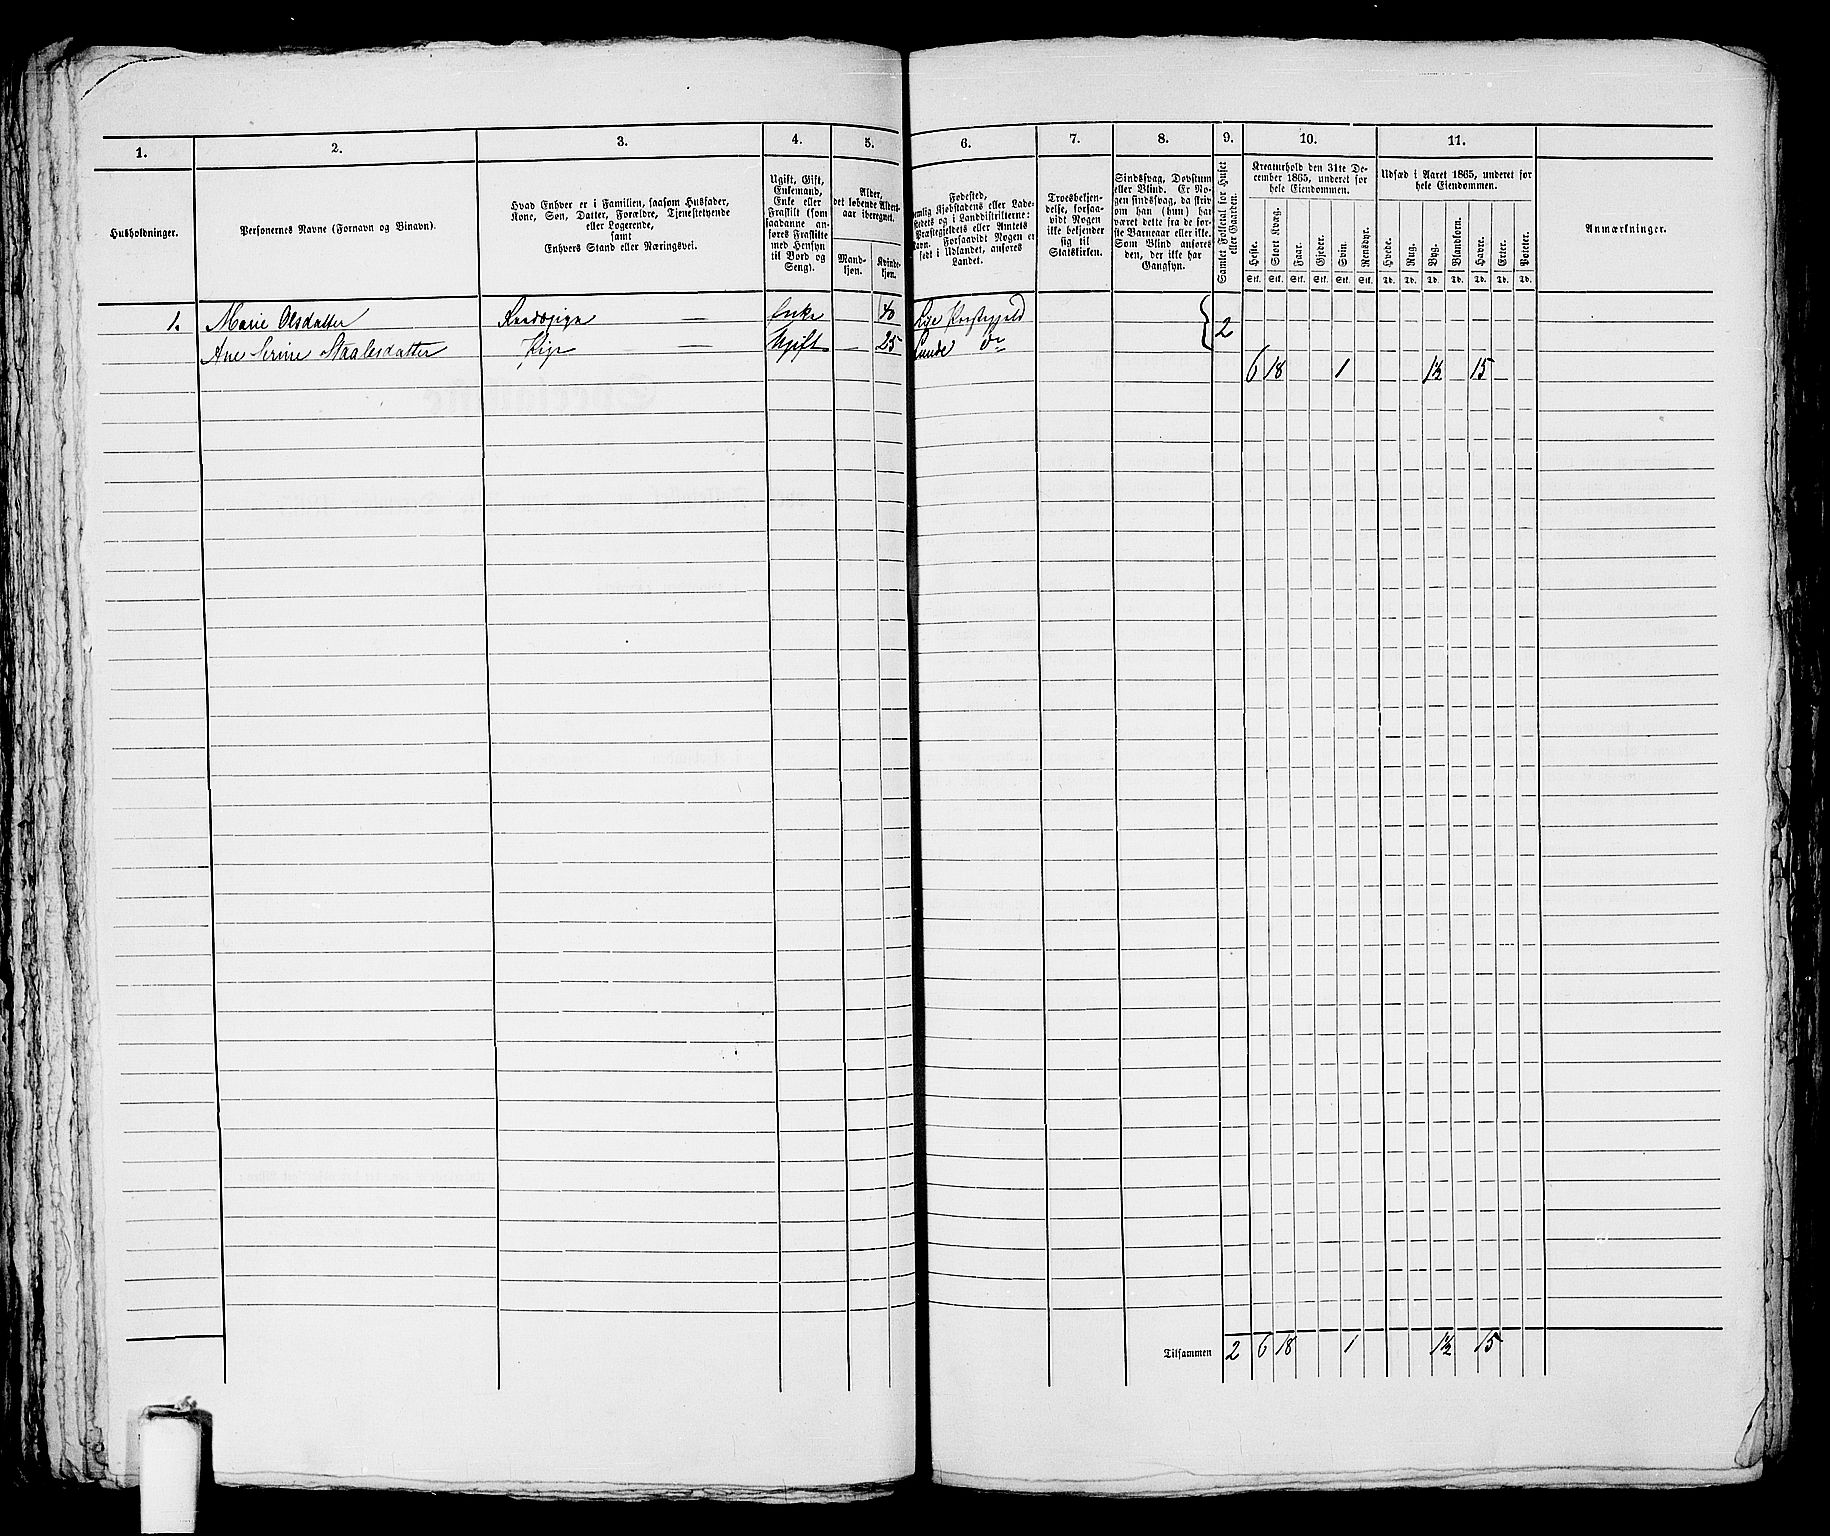 1. 2. 3. 4. 5. 6. 7. 8. 9. 10. 11.
Husholdninger.
Personernes Navne (Fornavn og Binavn).
Hvad Enhver er i Familien, saasom Husfader,
Kone, Søn, Datter, Forældre, Tjenestetyende
eller Logerende,
samt
Enhvers Stand eller Næringsvei.
Ugift, Gift,
Enkemand,
Enke eller
Fraskilt (som
saadanne an-
føres Fraskilte
med Hensyn
til Bord og
Seng).
Alder,
det løbende Alders-
aar iberegnet.
Mand-
kjøn.
Kvinde-
kjøn.
Fødested,
nemlig Kjøbstadens eller Lade-
stedets og i Landdistrikterne:
Præstegjeldets eller Amtets
Navn. Forsaavidt Nogen er
født i Udlandet, anføres
Landet.
Troesbekjen-
delse, forsaa-
vidt Nogen
ikke bekjender
sig til
Statskirken.
Sindssvag, Døvstum
eller Blind. Er No-
gen sindssvag, da skriv
om han (hun) har
været dette fra de før-
ste Barneaar eller ikke.
Som Blind anføres
den, der ikke har
Gangsyn.
Samlet Folketal for Huset
eller Gaarden.
Kreaturhold den 31te De-
cember 1865, underet for
hele Eiendommen.
Heste. Stort Kvæg. Faar. Gjeder. Svin. Rensdyr.
Stk. Stk. Stk. Stk. Stk. Stk.
Udsæd i Aaret 1865, underet for
hele Eiendommen.
Hvede. Rug. Byg. Blandkorn. Havre. Erter. Poteter.
Td. Td. Td. Td. Td. Td. Td.
Anmærkninger.
1. Marie Olsdatter — Enke 40 Lye Præstegjeld
Ane Serine Staalesdatter — Ugift — 25 Lunde Do 2
6 18 1 1½ 15
Tilsammen 2 6 18 1 1½ 15